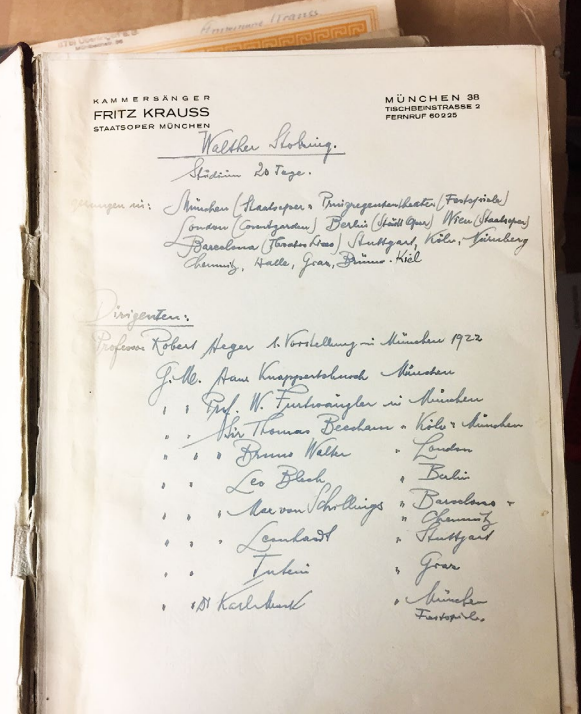 KAMMERSÄNGER
FRITZ KRAUSS
STAATSOPER MÜNCHEN
MÜNCHEN 38
TISCHBEINSTRASSE 2
FERNRUF 60225
Walther Stolzing.
Studium 20 Tage.
in: München (Staatsoper u Prinzregententheater (Festspiele)
London (Coventgarden) Berlin (Städt Oper) Wien (Staatsoper)
Barcelona (Theatro Liceo) Stuttgart, Köln, Nürnberg
Chemnitz, Halle, Graz, Brünn. Kiel
Dirigenten:
Professor Robert Heger 1. Vorstellung in München 1922
G.M. Hans Knappertsbusch München
" " Prof. W. Furtwängler in München
" " Sir Thomas Beecham " Köln u München
" " " Bruno Walter " London
" " Leo Blech " Berlin
" " " Max von Schillings " Barcelona u
" Chemnitz
" " " Leonhardt " Stuttgart
" " " Graz
" " Dr Karl Muck " München
Festspiele.